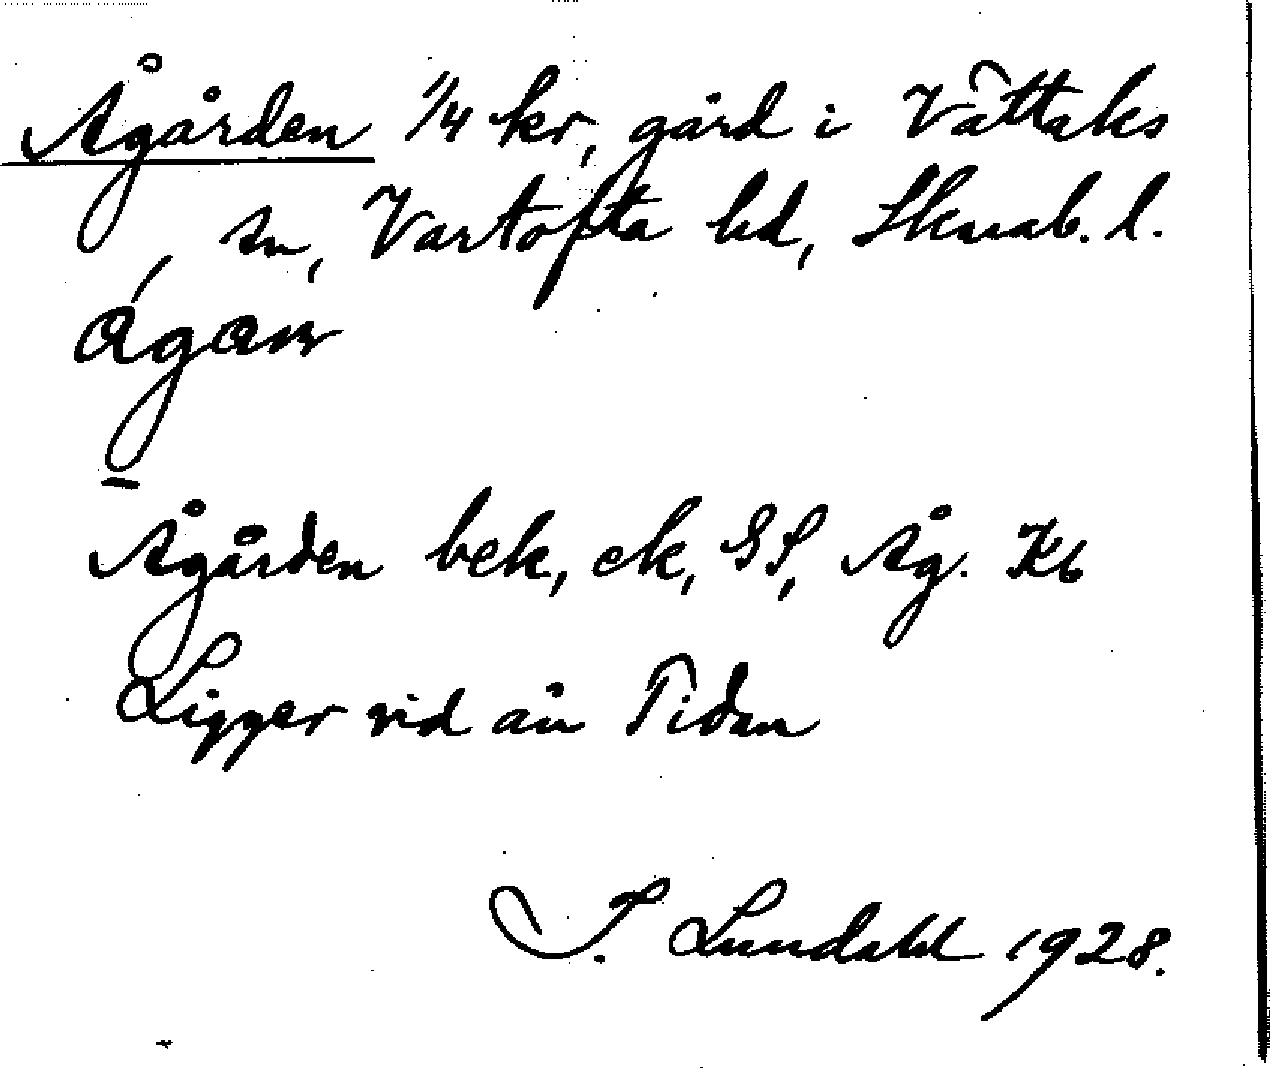 Ågården 1/4 kr, gård i Vättaks
sn, Vartofta hd, Skarab. l.
Ågården bek, ek, GS, Åg. Kb
Ligger vid ån Tidan
I. Lundahl 1928.